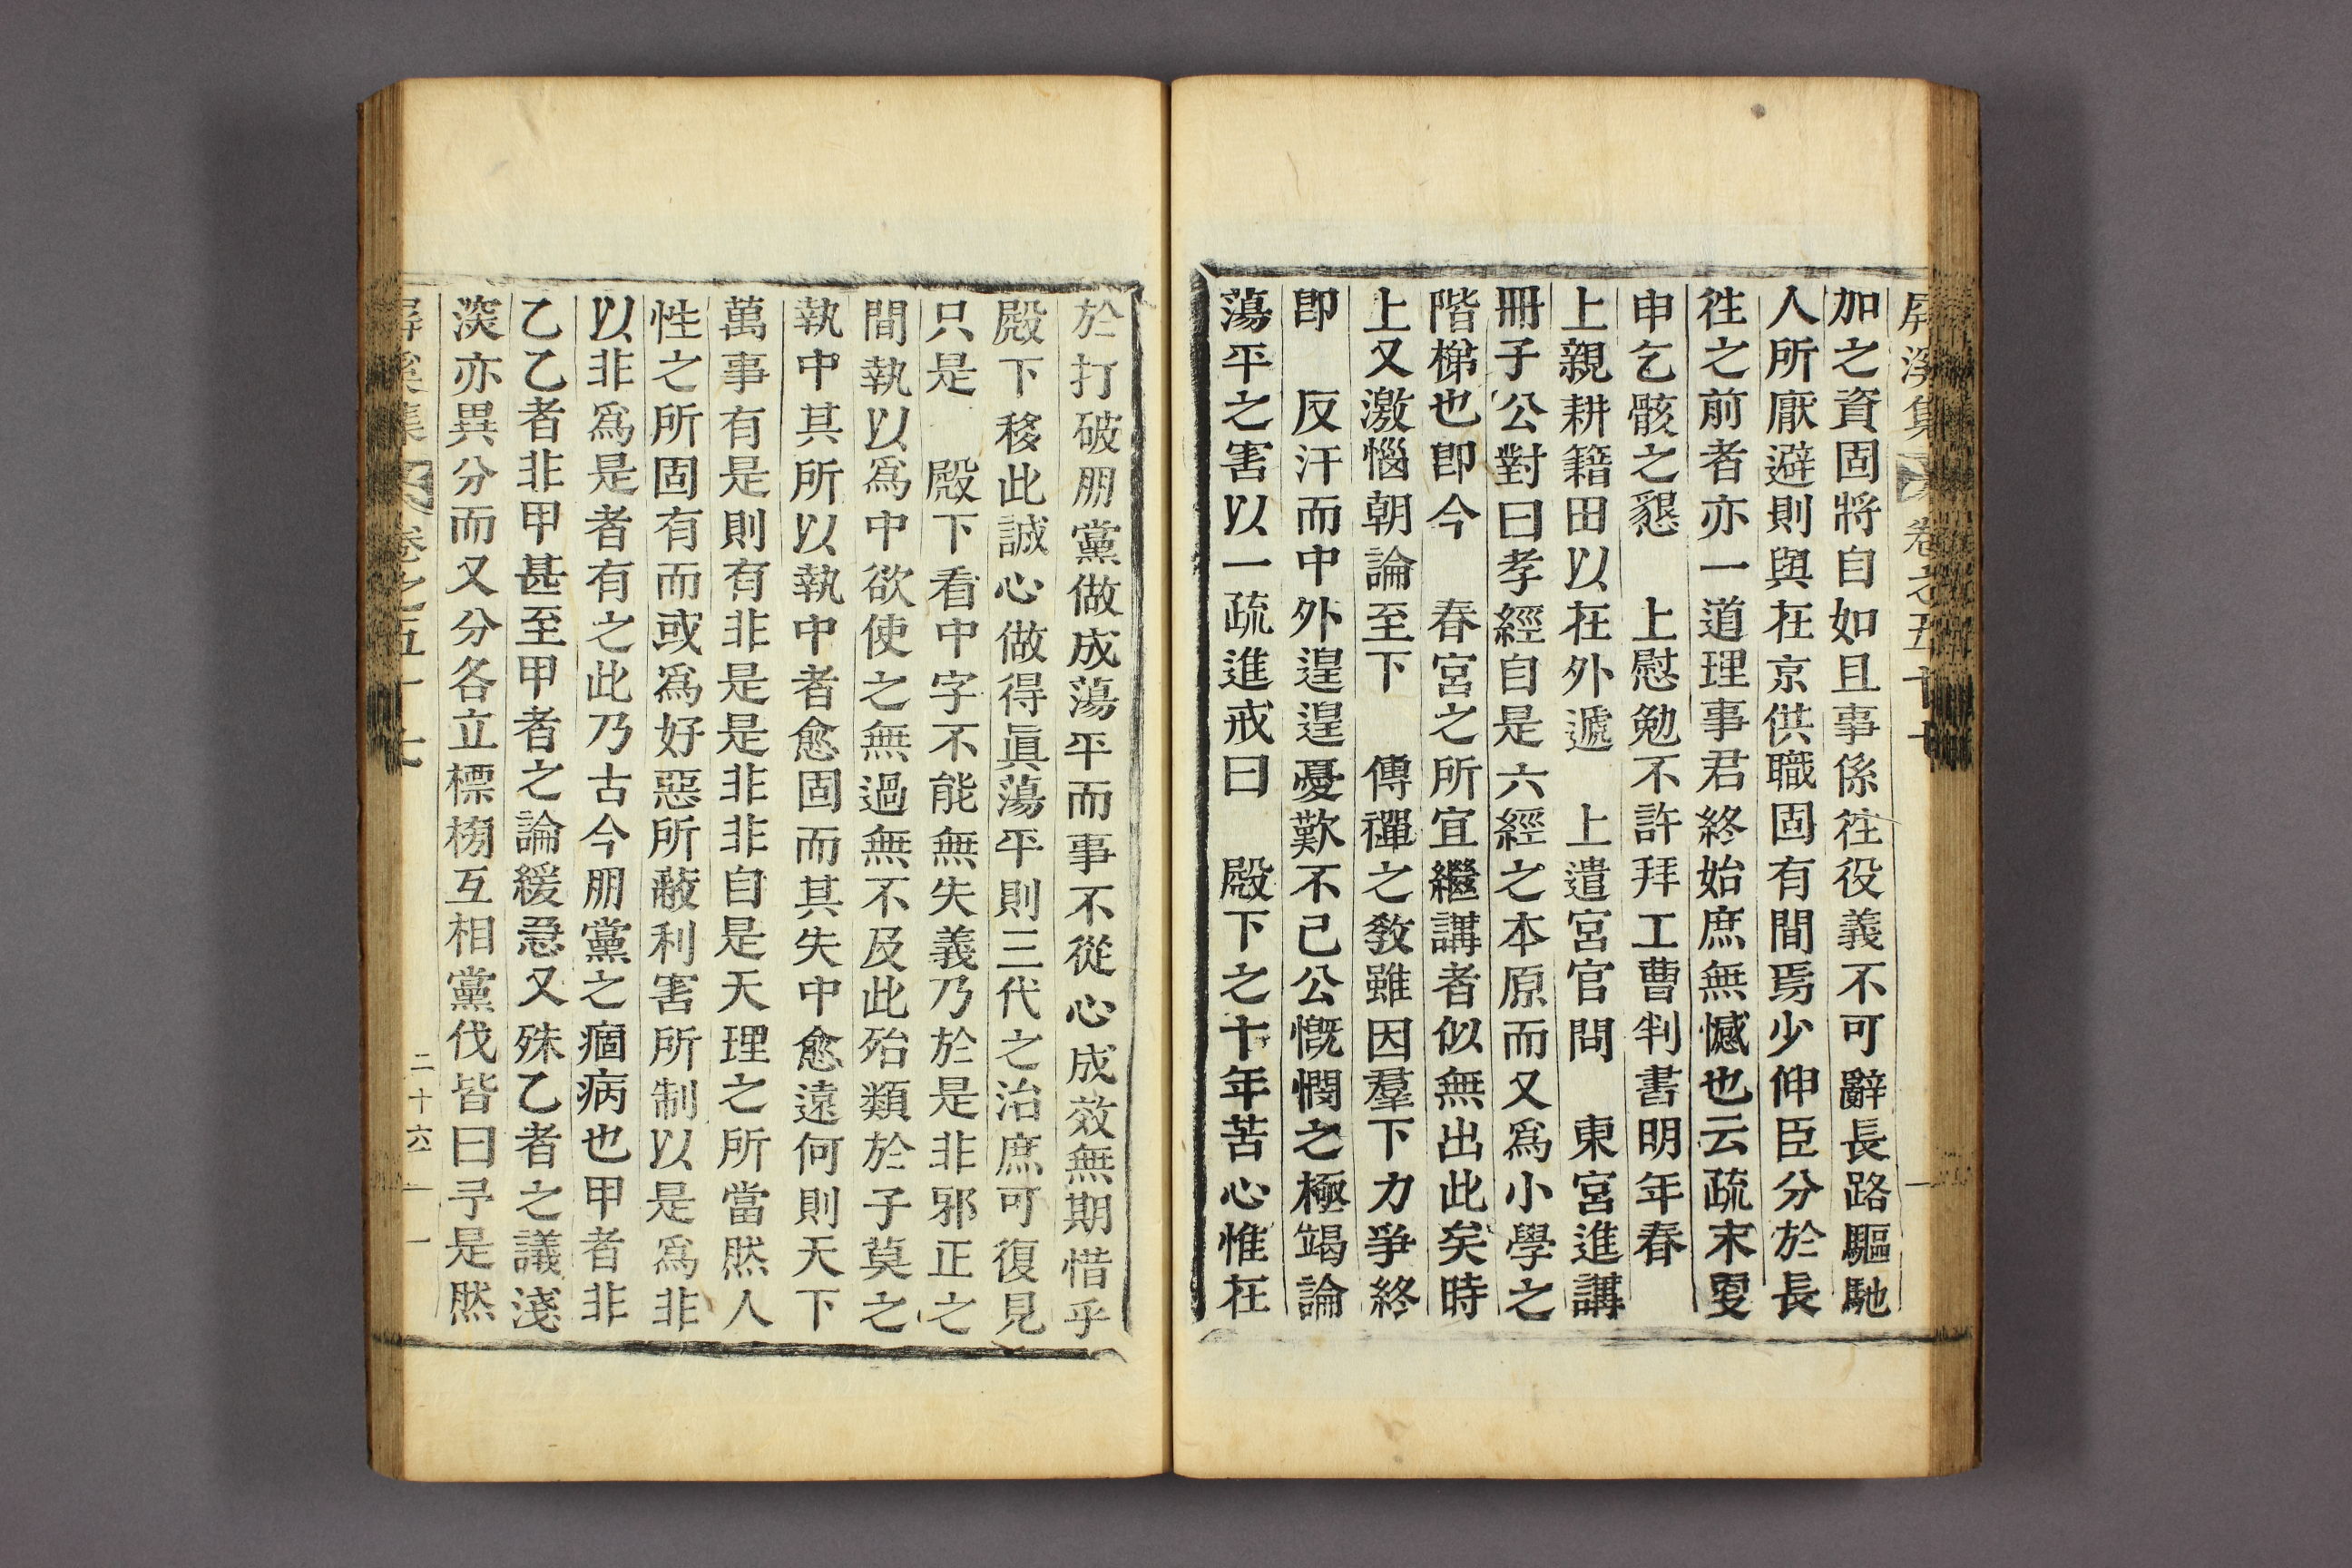 加之資固將自如且事係徃役義不可辭長路驅馳
人所厭避則與在京供職固有間焉少伸臣分於長
徃之前者亦一道理事君終始庶無憾也云疏末更
申乞骸之懇 上慰勉不許拜工曹判書明年春
上親耕籍田以在外遞 上遣宮官問 東宮進講
冊子公對曰孝經自是六經之本原而又爲小學之
階梯也卽今 春宮之所宜繼講者似無出此矣時
上又激惱朝論至下 傳禪之敎雖因羣下力爭終
卽 反汗而中外遑遑憂歎不已公慨憫之極竭論
蕩平之害以一疏進戒曰 殿下之十年苦心惟在
於打破朋黨做成蕩平而事不從心成效無期惜乎
殿下移此誠心做得眞蕩平則三代之治庶可復見
只是 殿下看中字不能無失義乃於是非邪正之
間執以爲中欲使之無過無不及此殆類於子莫之
執中其所以執中者愈固而其失中愈遠何則天下
萬事有是則有非是是非非自是天理之所當然人
性之所固有而或爲好惡所蔽利害所制以是爲非
以非爲是者有之此乃古今朋黨之痼病也甲者非
乙乙者非甲甚至甲者之論緩急又殊乙者之議淺
深亦異分而又分各立標榜互相黨伐皆曰予是然
屛溪集 卷之五十七
二十六